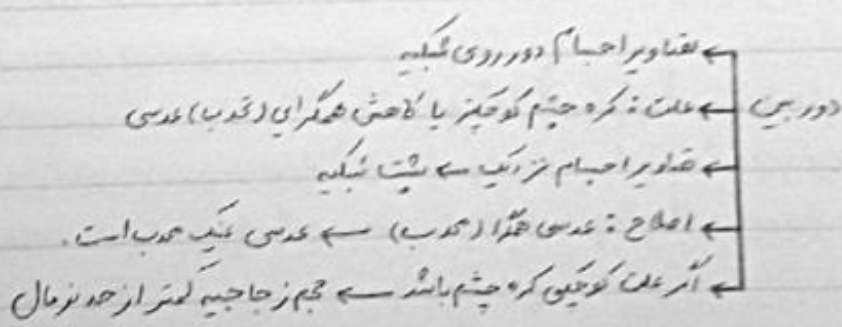 ← تصاویر اجسام دور روی شبکیه
دور بین ← علت : کره چشم کوچکتر یا کاهش همگرایی (تحدب) عدسی
← تصاویر اجسام نزدیک ← پشت شبکیه
← اصلاح : عدسی همگرا (محدب) ← عدسی عینک محدب است.
← اگر علت کوچکی کره چشم باشد ← حجم زجاجیه کمتر از حد نرمال